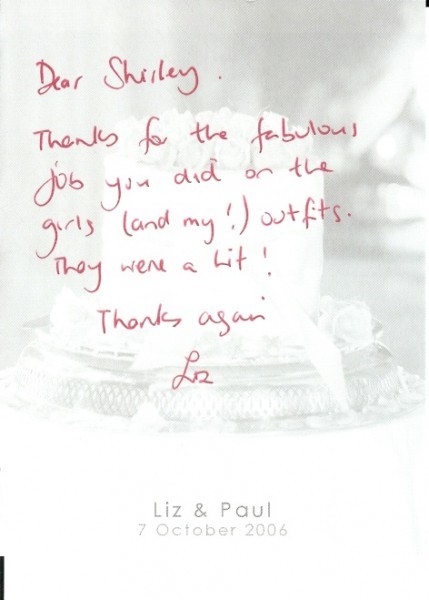 Dear Shirley.
Thanks for the fabulous
job you did on the
girls (and my!) outfits.
They were a hit!
Thanks again
Liz
Liz & Paul
7 October 2006